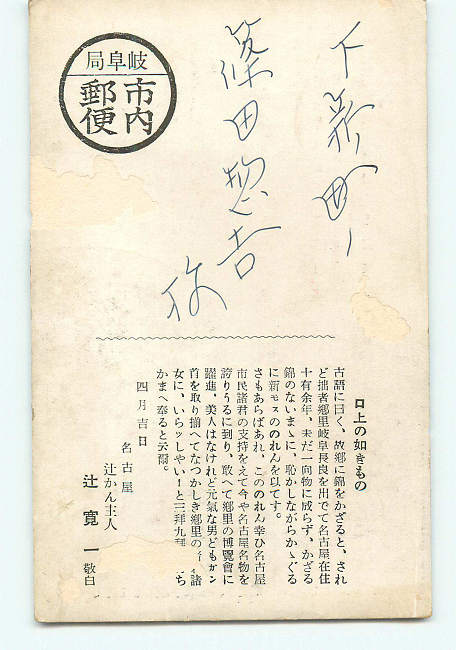 岐阜局
市内
郵便
下茶町
篠田惣吉
様
口上の如きもの
古語に曰く、故郷に錦をかざると、され
ど拙者郷里岐阜長良を出でて名古屋在住
十有余年、未だ一向物に成らず、かざる
錦のないまゝに、恥かしながらかゝぐる
に新モスののれんを以てす。
さもあらばあれ、こののれん幸ひ名古屋
市民諸君の支持をえて今や名古屋名物を
誇りうるに到り、敢へて郷里の博覽會に
躍進、美人はなけれど元氣な男どもガン
首を取り揃へてなつかしき郷里の 諸
女に、いらッしやいーと三拜九 ち
かまへ奉ると云爾。
四月吉日
名古屋
辻かん主人
辻寛一敬白